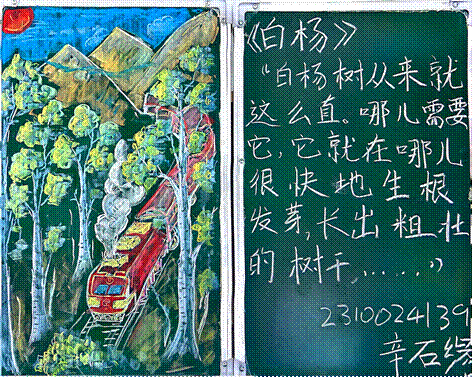 《白杨》
“白杨树从来就
这么直。哪儿需要
它，它就在哪儿
很快地生根
发芽，长出粗壮
的树干，……”
2310024139
辛石缘